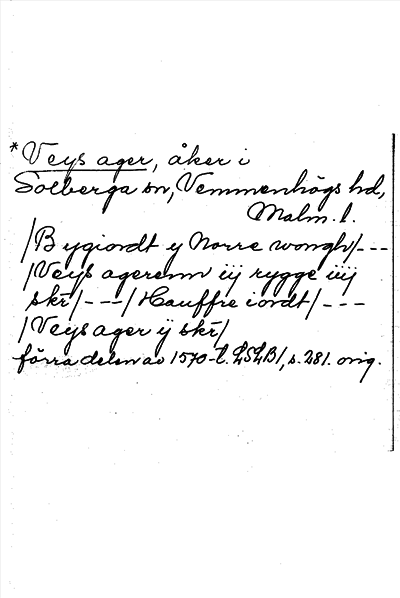 *Veys ager, åker i
Solberga sn, Vemmenhögs hd,
Malm. l.
/Bygiordt y Norre wongh/---
/Veys agerenn iij rygge iiij
skr/---/Hauffre iordt/---
/Veys ager ij skr/
förra delen av 1570-t. LSLB1, s. 281. orig.